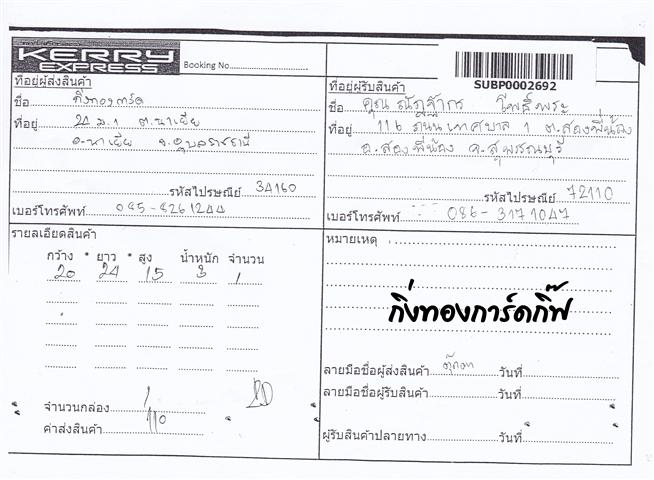 KERRY
EXPRESS
Booking No.
SUBP0002692
ที่อยู่ผู้ส่งสินค้า
ชื่อ กิ่งทองการ์ด
ที่อยู่ 24 ม.1 ต.นาเยีย
อ.นาเยีย จ.อุบลราชธานี
รหัสไปรษณีย์ 34160
เบอร์โทรศัพท์ 085-8261244
ที่อยู่ผู้รับสินค้า
ชื่อ คุณ ณัฏฐ์ากร โพธิ์พระ
ที่อยู่ 116 ถนนเทศบาล 1 ต.สองพี่น้อง
อ.สองพี่น้อง จ.สุพรรณบุรี
รหัสไปรษณีย์ 72110
เบอร์โทรศัพท์ 086-3171047
รายละเอียดสินค้า
กว้าง * ยาว * สูง น้ำหนัก จำนวน
20 24 15 3 1
จำนวนกล่อง 1
ค่าส่งสินค้า 110
หมายเหตุ
กิ่งทองการ์ดกิ๊ฟ
ลายมือชื่อผู้ส่งสินค้า ตุ๊กตา วันที่
ลายมือชื่อผู้รับสินค้า วันที่
ผู้รับสินค้าปลายทาง วันที่